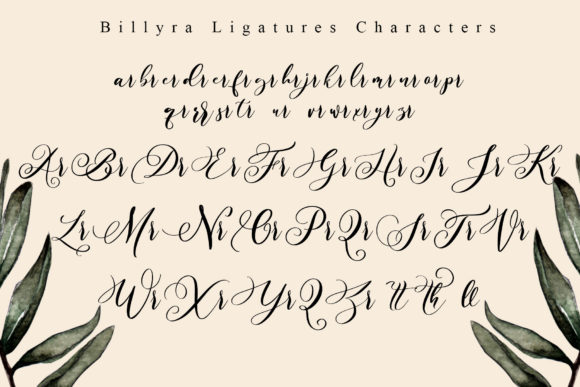 Billyra Ligatures Characters
ar br cr dr er fr gr hr jr kr lr mr nr or pr
qr rr sr tr ur vr wr xr yr zr
Ar Br Dr Er Fr Gr Hr Ir Jr Kr
Lr Mr Nr Or Pr Qr Sr Tr Vr
Wr Xr Yr Zr tt th ll